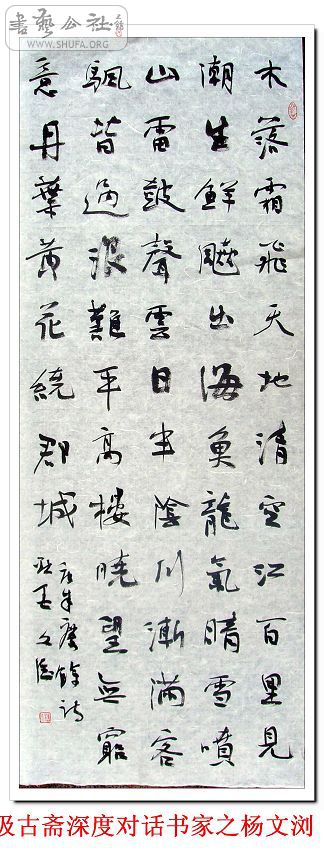 書藝公社
WWW.SHUFA.ORG
木落霜飛天地清空江百里見
潮生鮮飈出海魚龍氣晴雪噴
山雷鼓聲雲日半陰川漸滿客
颿皆過浪難平高樓曉望無窮
意丹葉黄花繞郡城
唐朱慶餘詩
及古斋深度对话书家之杨文浏